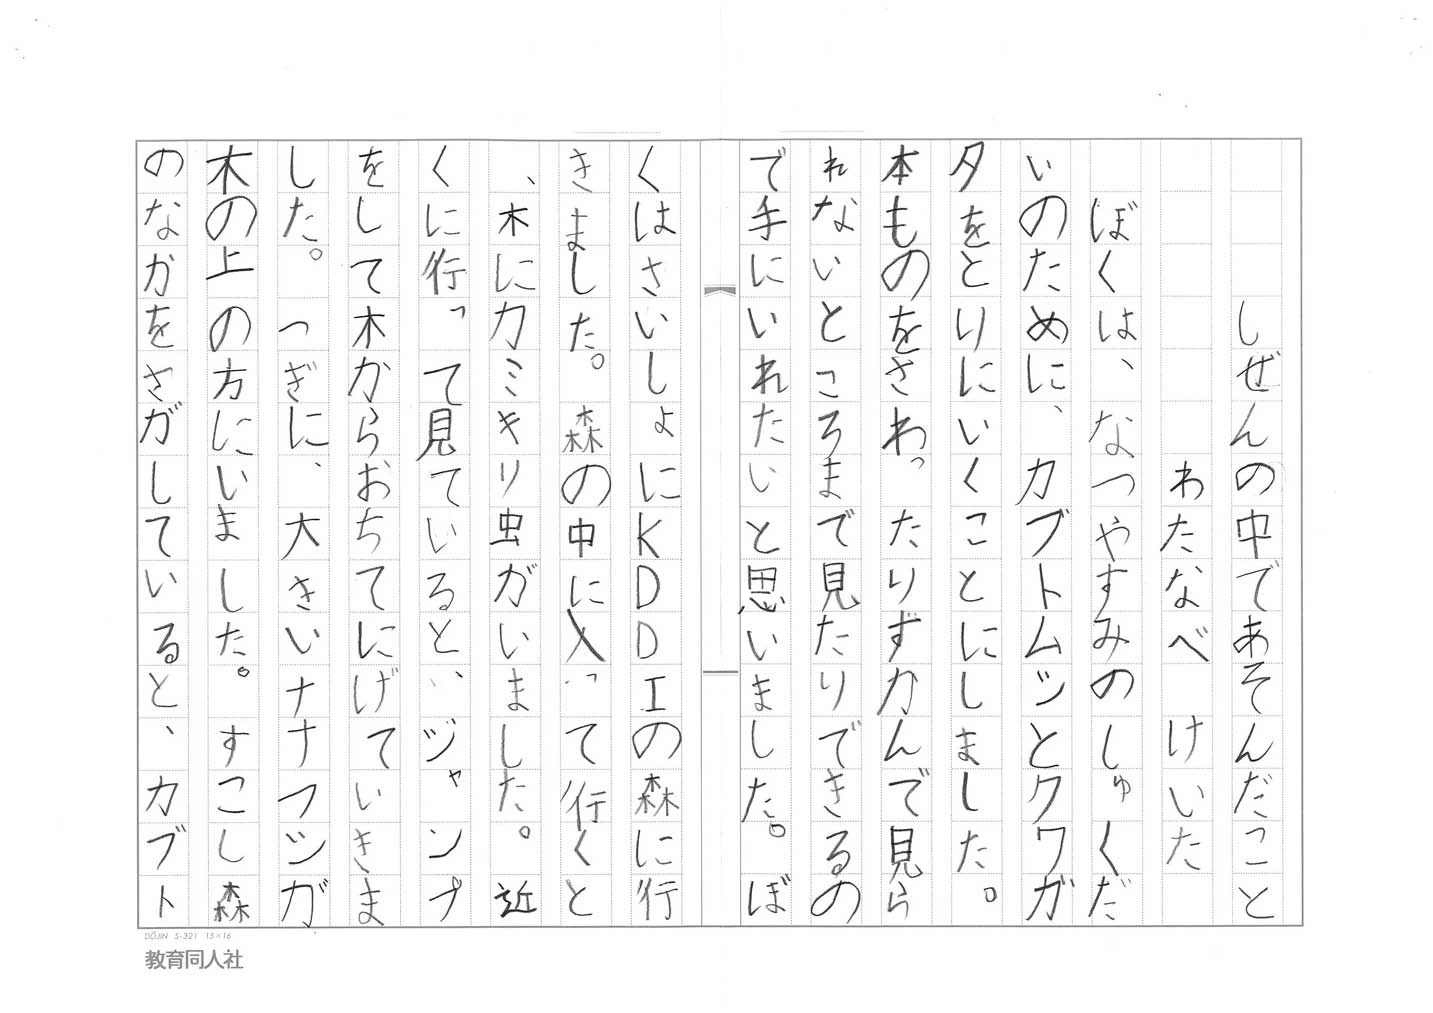 しぜんの中であそんだこと
わたなべ けいた
ぼくは、なつやすみのしゅくだ
いのために、カブトムツとクワガ
タをとりにいくことにしました。
本ものをさわったりずかんで見ら
れないところまで見たりできるの
で手にいれたいと思いました。ぼ
くはさいしょにKDDIの森に行
きました。森の中に入って行くと
、木にカミキリ虫がいました。近
くに行って見ていると、ジャンプ
をして木からおちてにげていきま
した。つぎに、大きいナナフツが
木の上の方にいました。すこし森
のなかをさがしていると、カブト
DŌJIN S-321 15×16
教育同人社